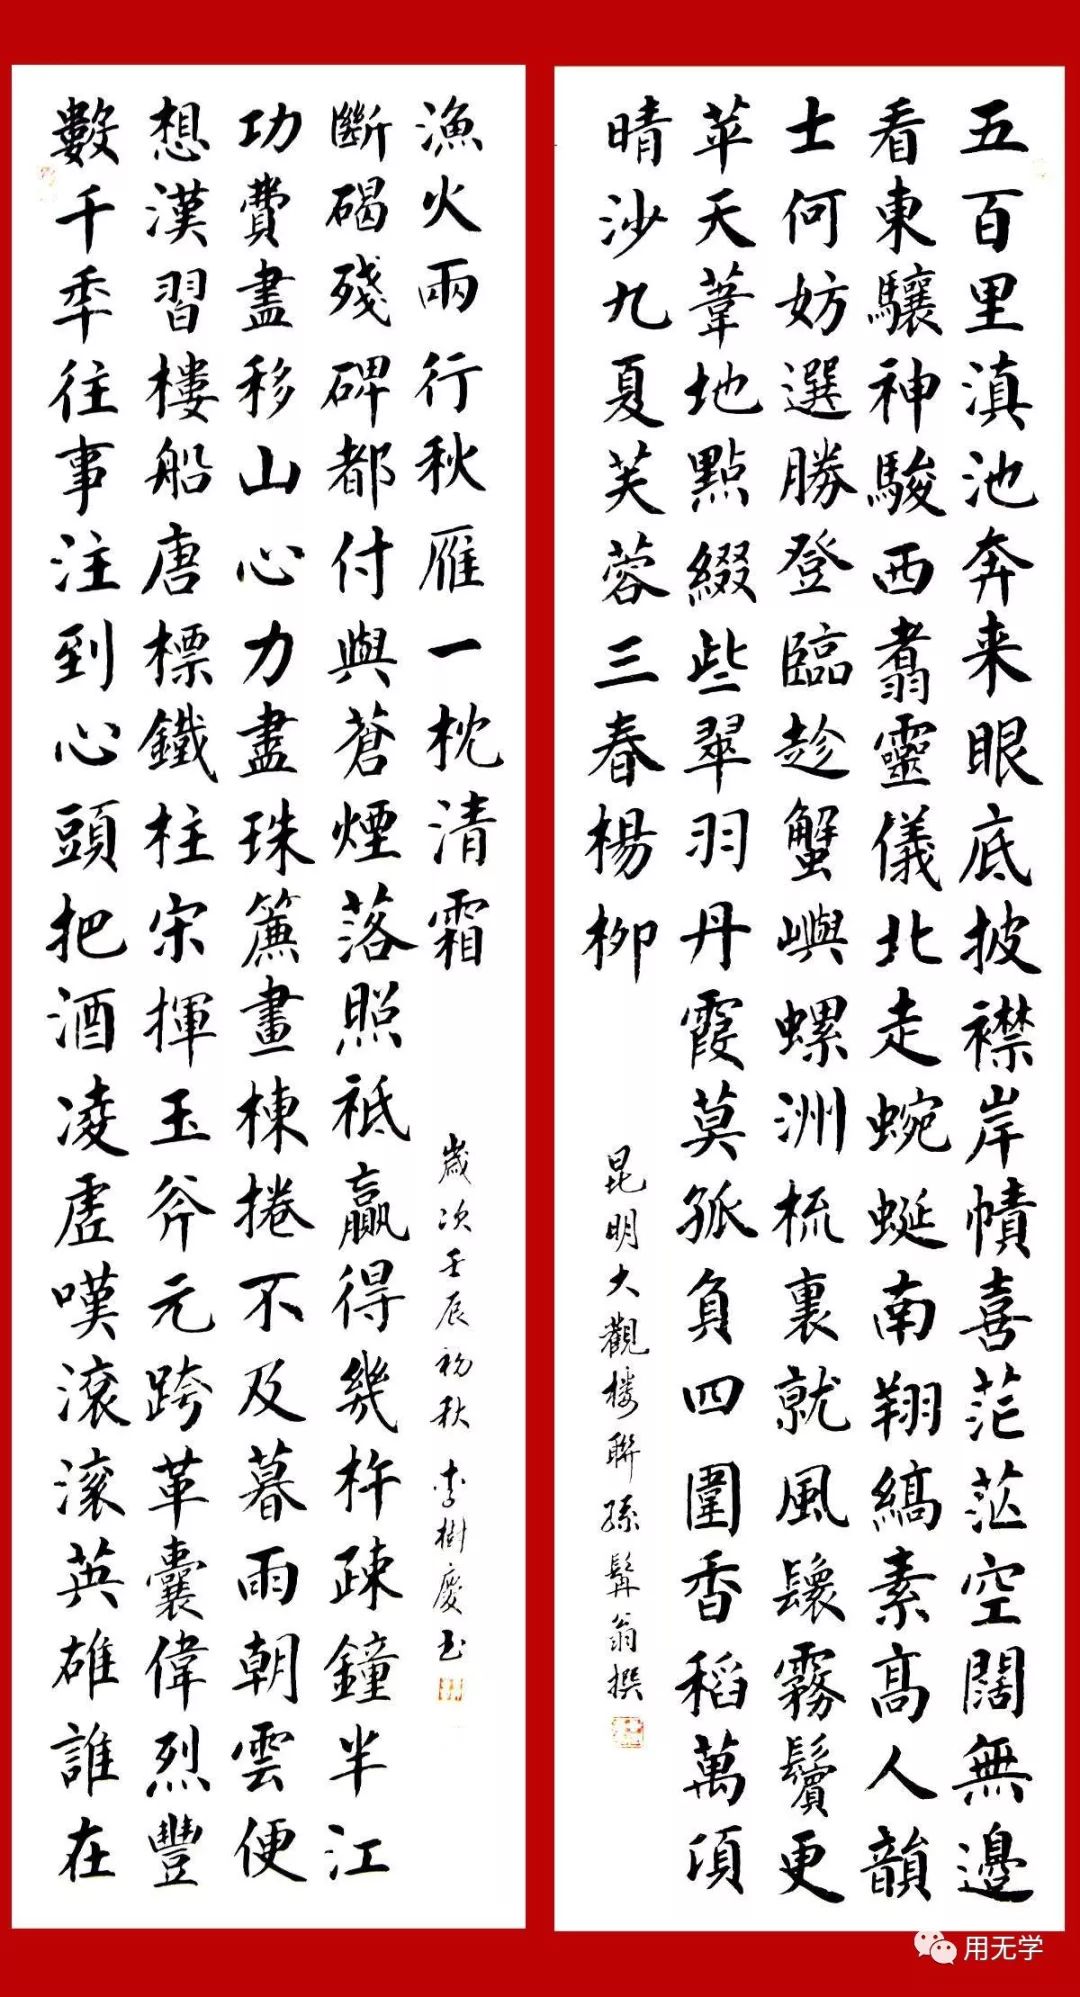 五百里滇池奔来眼底披襟岸幘喜茫茫空闊無邊
看東驤神駿西翥靈儀北走蜿蜒南翔縞素高人韻
士何妨選勝登臨趁蟹嶼螺洲梳裏就風鬟霧鬢更
苹天葦地點綴些翠羽丹霞莫孤負四圍香稻萬頃
晴沙九夏芙蓉三春楊柳
昆明大觀楼聯孫髯翁撰
數千秊往事注到心頭把酒凌虛嘆滾滾英雄誰在
想漢習樓船唐標鐵柱宋揮玉斧元跨革囊偉烈豐
功費盡移山心力盡珠簾畫棟捲不及暮雨朝雲便
斷碣殘碑都付與蒼煙落照祗贏得幾杵疎鐘半江
漁火兩行秋雁一枕清霜
歲次壬辰初秋李樹慶书
用无学